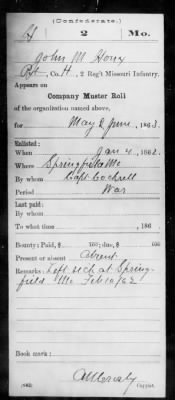 (Confederate.)
H 2 Mo.
John M Hony
Pvt, Co. H, 2 Reg't Missouri Infantry.
Appears on
Company Muster Roll
of the organization named above,
for May & June, 1863.
Enlisted:
When Jan 4, 1862.
Where Springfield Mo
By whom Capt Cockrell
Period War
Last paid:
By whom
To what time , 186 .
Bounty: Paid, $ 100; due, $ 100
Present or absent Absent
Remarks: Left sick at Spring-
field Mo Feb 10/62
Book mark:
(642) Copyist.